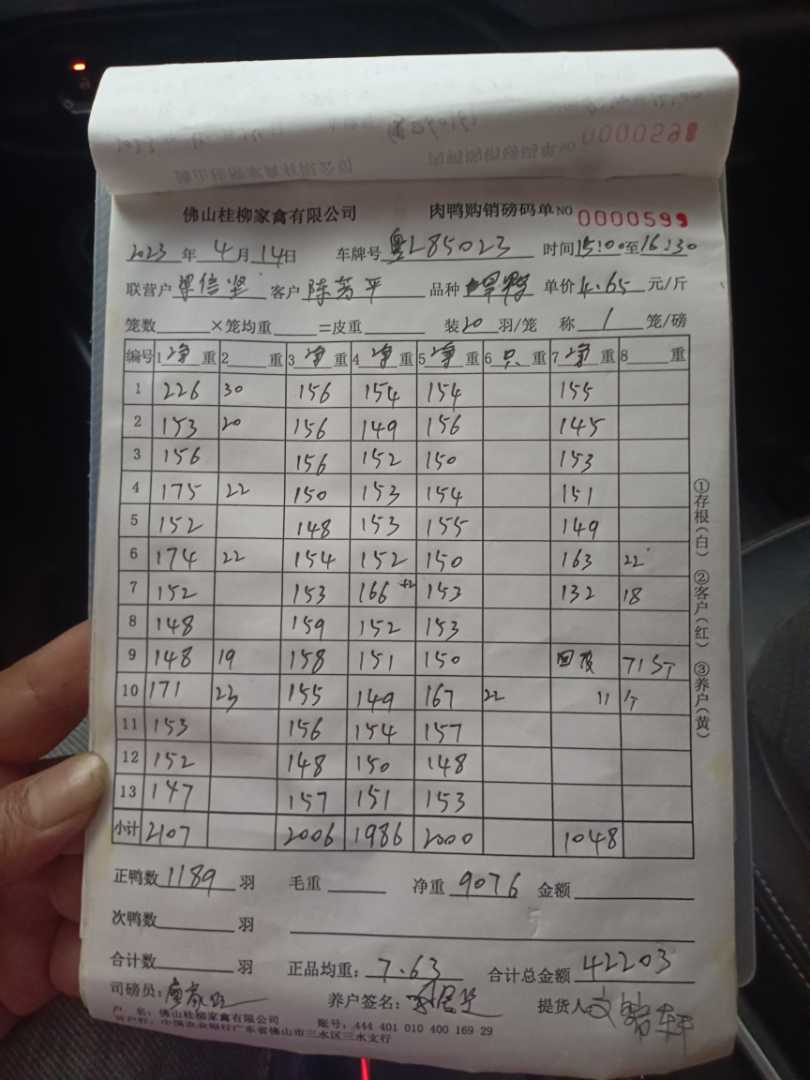 0000598
佛山桂柳家禽有限公司 肉鸭购销磅码单 NO 0000599
2023 年 4 月 14 日 车牌号 粤L85023 时间 15:00 至 16:30
联营户 梁信坚 客户 陈芳平 品种 单价 4.65 元/斤
笼数 ×笼均重 =皮重 装 20 羽/笼 称 1 笼/磅
编号 1 净 重 2 重 3 净 重 4 净 重 5 净 重 6 只 重 7 净 重 8 重
1 226 30 156 154 154 155
2 153 20 156 149 156 145
3 156 156 152 150 153
4 175 22 150 153 154 151
5 152 148 153 155 149
6 174 22 154 152 150 163 22
7 152 153 166 153 132 18
8 148 159 152 153
9 148 19 158 151 150 715T
10 171 23 155 149 167 22 11个
11 153 156 154 157
12 152 148 150 148
13 147 157 151 153
小计 2107 2006 1986 2000 1048
正鸭数 1189 羽 毛重 净重 9076 金额
次鸭数 羽
合计数 羽 正品均重: 7.63 合计总金额 42203
司磅员: 养户签名: 提货人
户 名: 佛山桂柳家禽有限公司 账号: 444 401 010 400 169 29
广东省佛山市三水区三水支行
①存根(白) ②客户(红) ③养户(黄)